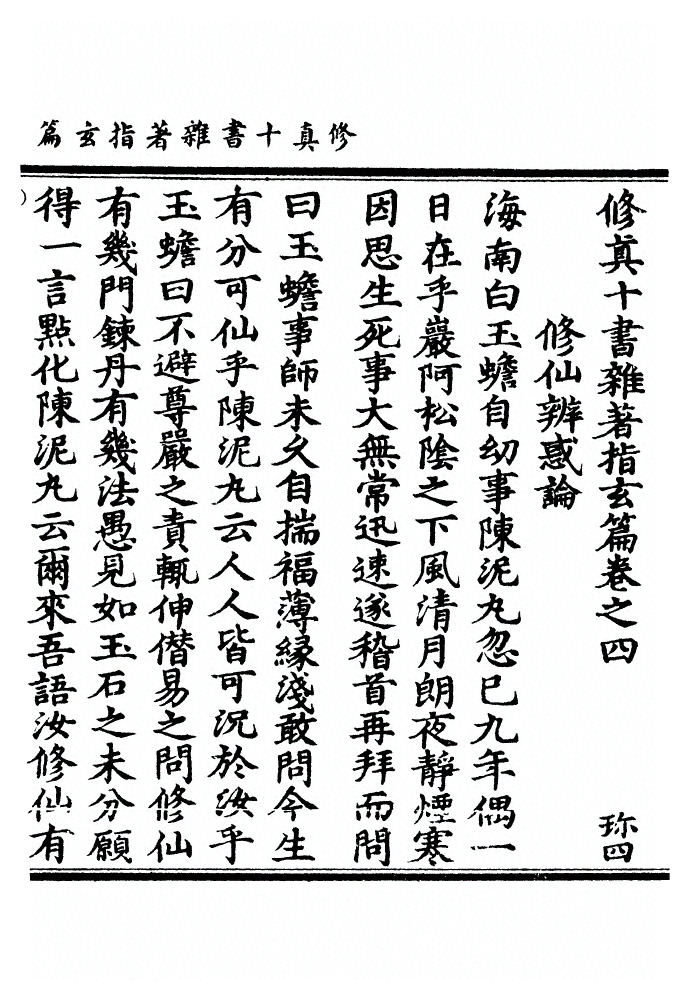 修真十書雜著指玄篇
修真十書雜著指玄篇卷之四 珎四
修仙辨惑論
海南白玉蟾自幼事陳泥丸忽已九年偶一
日在乎巖阿松陰之下風清月朗夜靜煙寒
因思生死事大無常迅速遂稽首再拜而問
曰玉蟾事師未久自揣福薄緣淺敢問今生
有分可仙乎陳泥丸云人人皆可況於汝乎
玉蟾曰不避尊嚴之責輒伸僭易之問修仙
有幾門鍊丹有幾法愚見如玉石之未分願
得一言點化陳泥丸云爾來吾語汝修仙有